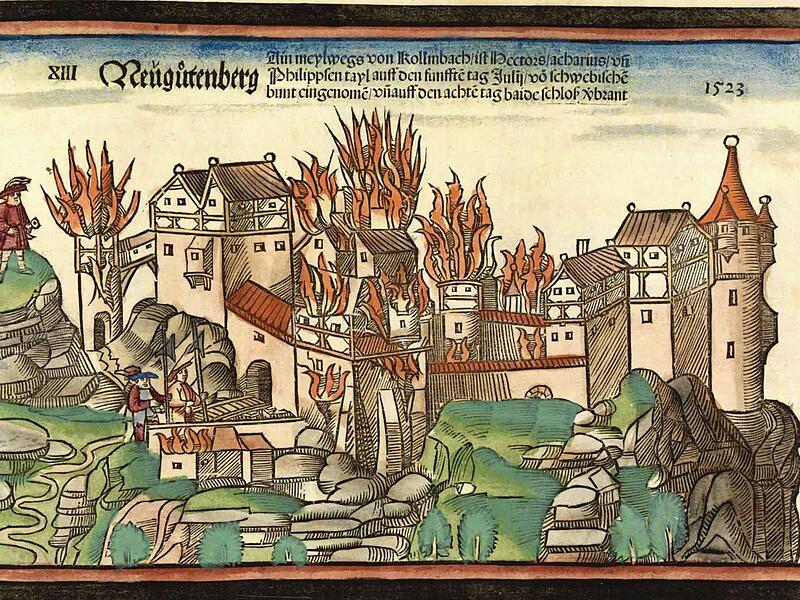 XIII Neŭgŭttenberg
Ain meylwegs von Kollmbach/ist Hectors/acharius/vñ
Philippsen tayl auff den funfftẽ tag Julij/võ schwebischẽ
bunt eingenomẽ/vñ auff den achtẽ tag baide schloß v̈brant
1523